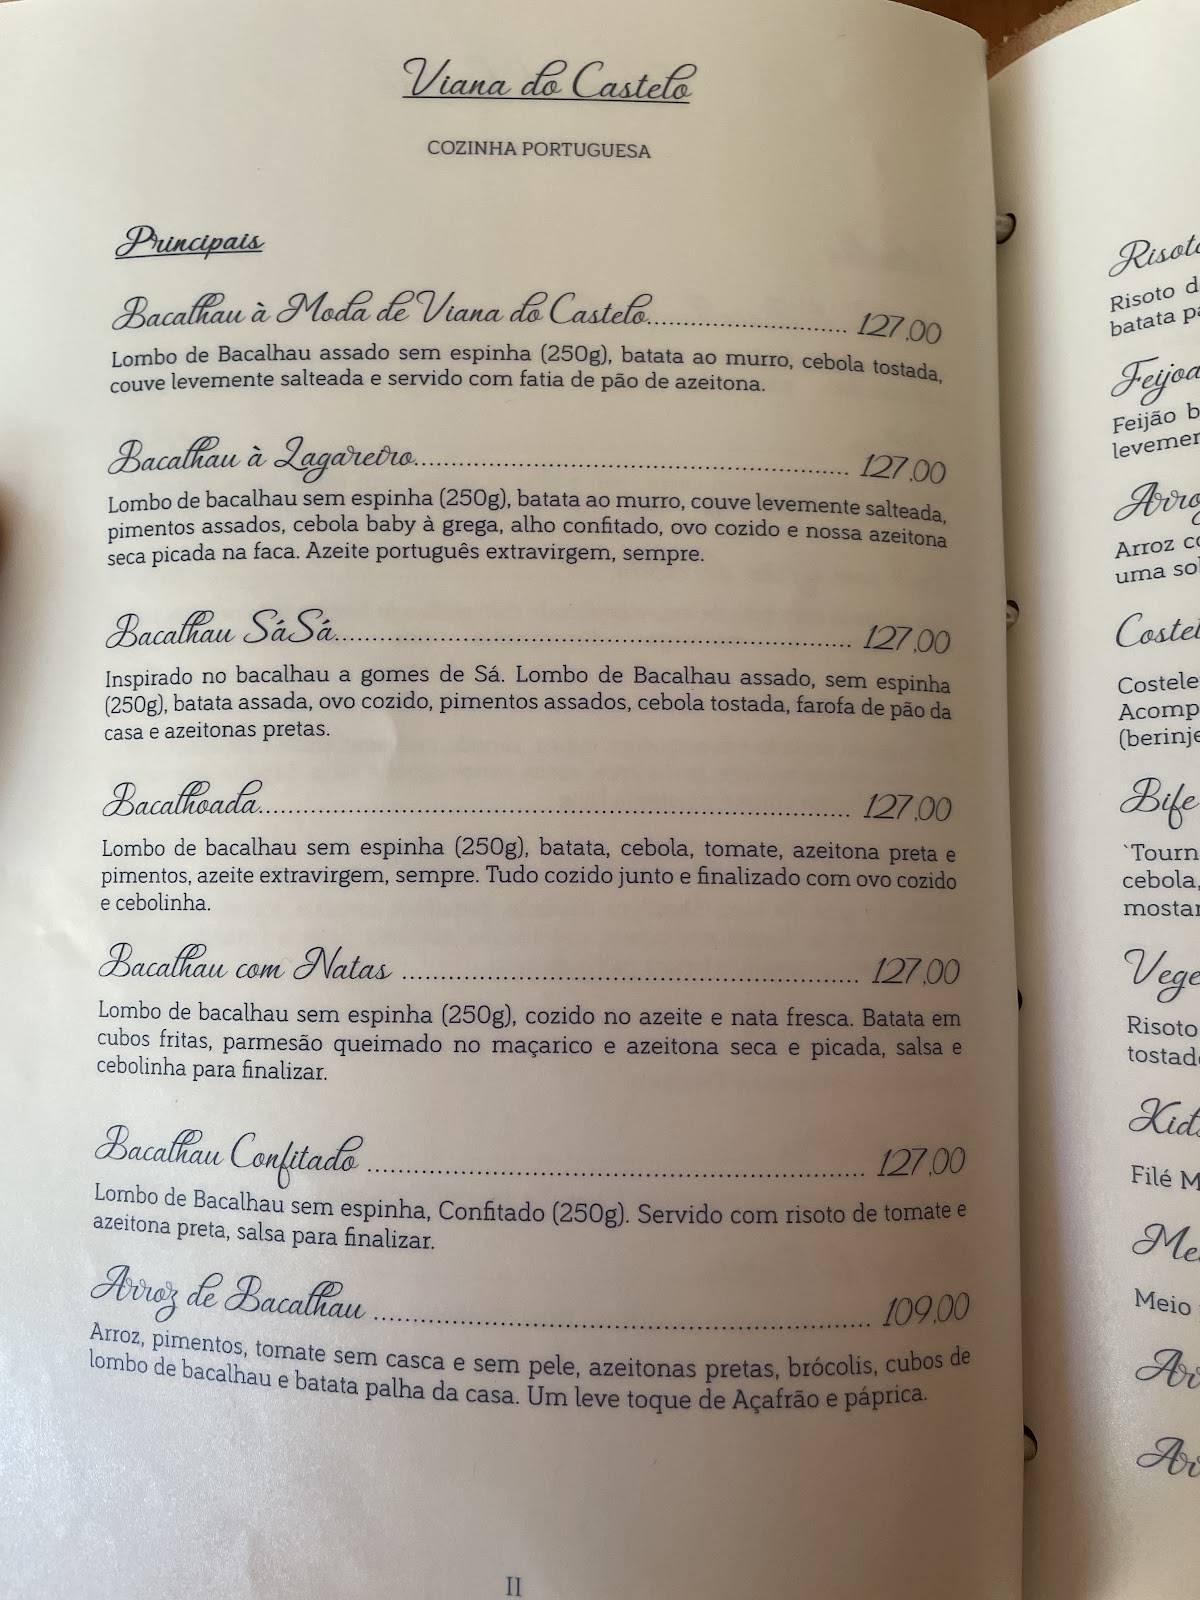 Viana do Castelo
COZINHA PORTUGUESA
Principais
Bacalhau à Moda de Viana do Castelo.............................. 127,00
Lombo de Bacalhau assado sem espinha (250g), batata ao murro, cebola tostada,
couve levemente salteada e servido com fatia de pão de azeitona.
Bacalhau à Lagareiro.............................................................. 127,00
Lombo de bacalhau sem espinha (250g), batata ao murro, couve levemente salteada,
pimentos assados, cebola baby à grega, alho confitado, ovo cozido e nossa azeitona
seca picada na faca. Azeite português extravirgem, sempre.
Bacalhau SáSá........................................................................ 127,00
Inspirado no bacalhau a gomes de Sá. Lombo de Bacalhau assado, sem espinha
(250g), batata assada, ovo cozido, pimentos assados, cebola tostada, farofa de pão da
casa e azeitonas pretas.
Bacalhoada.................................................................................. 127,00
Lombo de bacalhau sem espinha (250g), batata, cebola, tomate, azeitona preta e
pimentos, azeite extravirgem, sempre. Tudo cozido junto e finalizado com ovo cozido
e cebolinha.
Bacalhau com Natas ................................................................ 127,00
Lombo de bacalhau sem espinha (250g), cozido no azeite e nata fresca. Batata em
cubos fritas, parmesão queimado no maçarico e azeitona seca e picada, salsa e
cebolinha para finalizar.
Bacalhau Confitado ................................................................... 127,00
Lombo de Bacalhau sem espinha, Confitado (250g). Servido com risoto de tomate e
azeitona preta, salsa para finalizar.
Arroz de Bacalhau ................................................................... 109,00
Arroz, pimentos, tomate sem casca e sem pele, azeitonas pretas, brócolis, cubos de
lombo de bacalhau e batata palha da casa. Um leve toque de Açafrão e páprica.
II
Risoto
Risoto d
batata pa
Feijoa
Feijão b
levemen
Arro
Arroz co
uma so
Costel
Costele
Acomp
(berinje
Bife
`Tourn
cebola,
mostar
Vege
Risoto
tostad
Kids
Filé M
Me
Meio
Ar
Ar